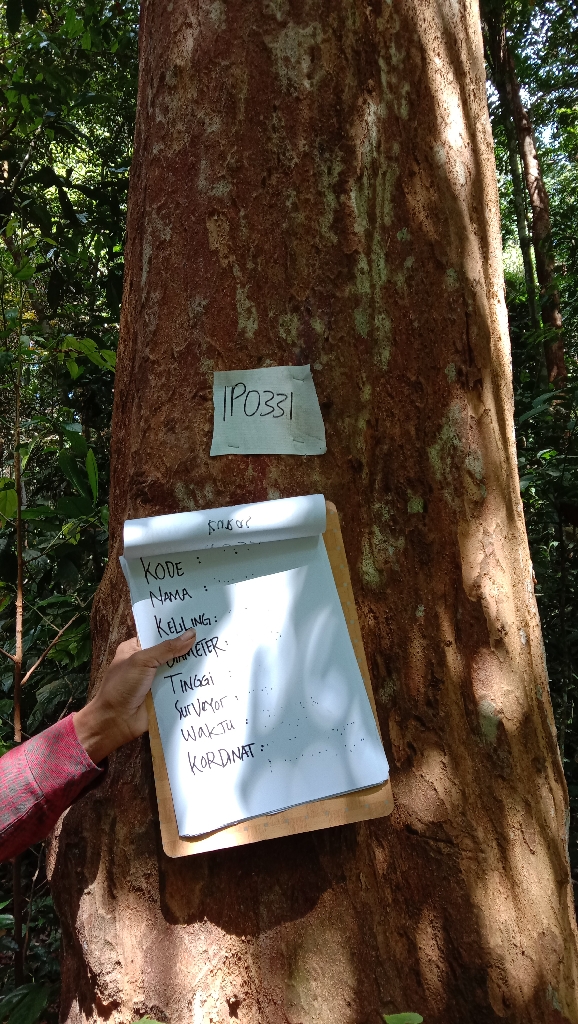 IP0331
KODE :
NAMA :
KELILING :
DIAMETER :
TINGGI :
SURVEYOR :
WAKTU :
KORDINAT :